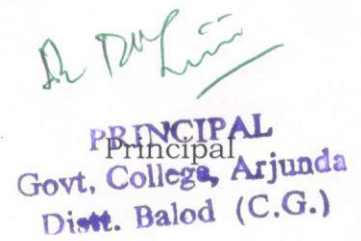 PRINCIPAL
Principal
Govt, College, Arjunda
Distt. Balod (C.G.)